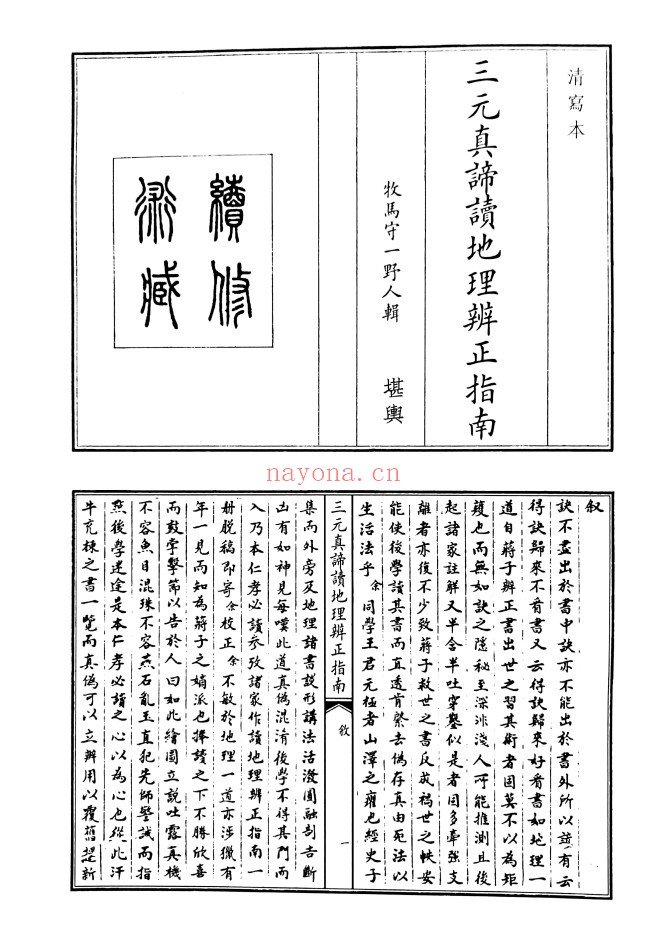 清寫本
三元真諦讀地理辨正指南
牧馬守一野人輯 堪輿
續修
術藏
nayona.cn
叙
訣不盡出於書中訣亦不能出於書外所以英有云
得訣歸來不看書又云得訣歸來好看書如地理一
道自蔣子辨正書出世之習其術者固莫不以為矩
矱也而無如訣之隱秘至深非淺人所能推測且後
起諸家註解又半含半吐穿鑿似是者固多牽強支
離者亦復不少致蔣子救世之書反成禍世之帙安
能使後學讀其書而直透肯綮去偽存真由死法以
生活法乎余同學王君元極者山澤之癯也經史子
三元真諦讀地理辨正指南 叙 一
集而外旁及地理諸書說形講法活潑圓融剖吉斷
凶有如神見每嘆此道真偽混淆後學不得其門而
入乃本仁孝必讀參攷諸家作讀地理辨正指南一
册脫稿即寄余校正余不敏於地理一道亦涉獵有
年一見而知為蔣子之嫡派也捧讀之下不勝欣喜
而鼓掌擊節以告於人曰如此繪圖立說吐露真機
不容魚目混珠不容燕石亂玉直犯先師警誡而指
點後學迷途是本仁孝必讀之心以為心也從此汗
牛充棟之書一覽而真偽可以立辨用以覆舊墳新